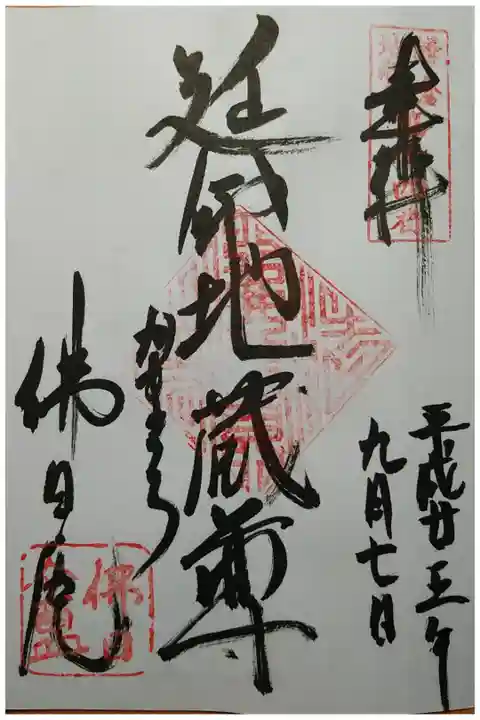 奉拝
平成廿五年
九月七日
延命地蔵尊
かまくら
佛日庵